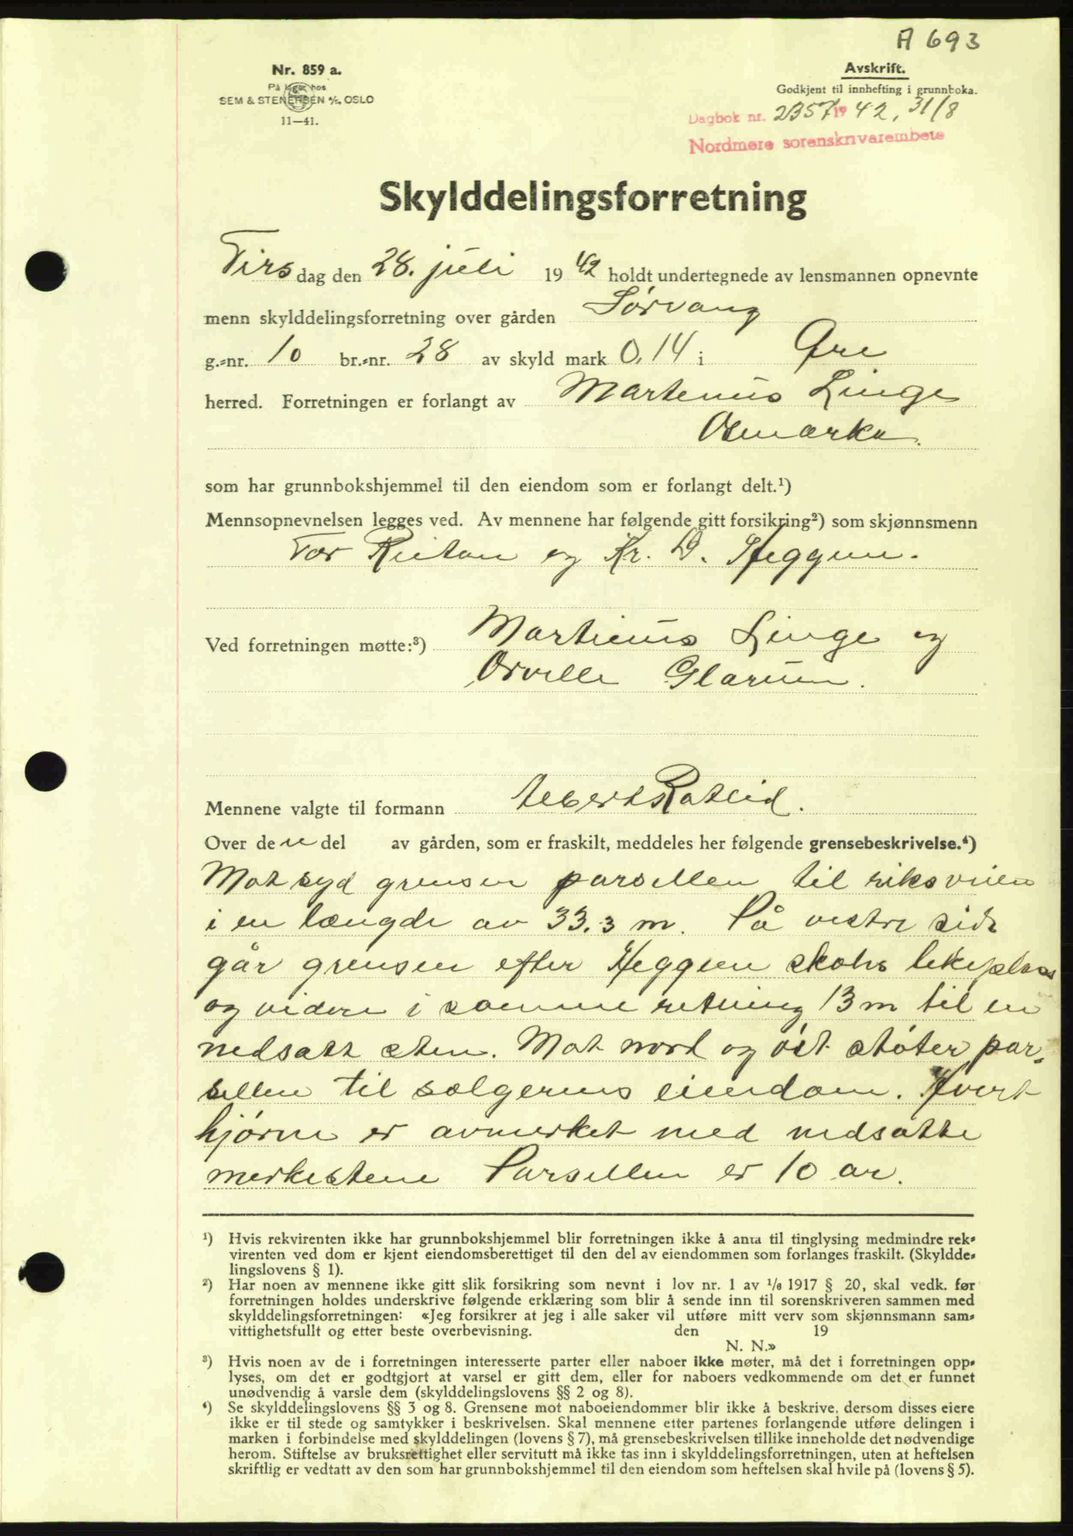 A 693
Nr. 859 a.
På lager hos
SEM & STENERSEN A/S, OSLO
11—41.
Avskrift.
Godkjent til innhefting i grunnboka.
Dagbok nr. 2357 19 42, 31/8
Nordmøre sorenskriverembete
Skylddelingsforretning
Tirsdag den 28. juli 1942 holdt undertegnede av lensmannen opnevnte
menn skylddelingsforretning over gården Sørvang
g.-nr. 10 br.-nr. 28 av skyld mark 0,14 i Øre
herred. Forretningen er forlangt av Martinus Linge
Osmarka.
som har grunnbokshjemmel til den eiendom som er forlangt delt.¹)
Mennsopnevnelsen legges ved. Av mennene har følgende gitt forsikring²) som skjønnsmenn
Tor og Kr. D. Heggem.
Ved forretningen møtte:³) Martinus Linge og
Orville Glærum.
Mennene valgte til formann
Over den del av gården, som er fraskilt, meddeles her følgende grensebeskrivelse.⁴)
Mot syd grenser parsellen til riksveien
i en længde av 33.3 m. På vestre side
går grensen efter Heggem skoles lekeplass
og videre i samme retning 13 m til en
nedsatt sten. Mot nord og øst støter par-
sellen til selgerens eiendom. Hvert
hjørne er avmerket med nedsatte
merkestene Parsellen er 10 ar.
¹) Hvis rekvirenten ikke har grunnbokshjemmel blir forretningen ikke å anta til tinglysing medmindre rek-
virenten ved dom er kjent eiendomsberettiget til den del av eiendommen som forlanges fraskilt. (Skyldde-
lingslovens § 1).
²) Har noen av mennene ikke gitt slik forsikring som nevnt i lov nr. 1 av 1/6 1917 § 20, skal vedk. før
forretningen holdes underskrive følgende erklæring som blir å sende inn til sorenskriveren sammen med
skylddelingsforretningen: «Jeg forsikrer at jeg i alle saker vil utføre mitt verv som skjønnsmann sam-
vittighetsfullt og etter beste overbevisning. den 19
N. N.»
³) Hvis noen av de i forretningen interesserte parter eller naboer ikke møter, må det i forretningen opp-
lyses, om det er godtgjort at varsel er gitt dem, eller for naboers vedkommende om det er funnet
unødvendig å varsle dem (skylddelingslovens §§ 2 og 8).
⁴) Se skylddelingslovens §§ 3 og 8. Grensene mot naboeiendommer blir ikke å beskrive, dersom disses eiere
ikke er til stede og samtykker i beskrivelsen. Skal mennene etter partenes forlangende utføre delingen i
marken i forbindelse med skylddelingen (lovens § 7), må grensebeskrivelsen tillike inneholde det nødvendige
herom. Stiftelse av bruksrettighet eller servitutt må ikke tas inn i skylddelingsforretningen, uten at heftelsen
skriftlig er vedtatt av den som har grunnbokshjemmel til den eiendom som heftelsen skal hvile på (lovens § 5).